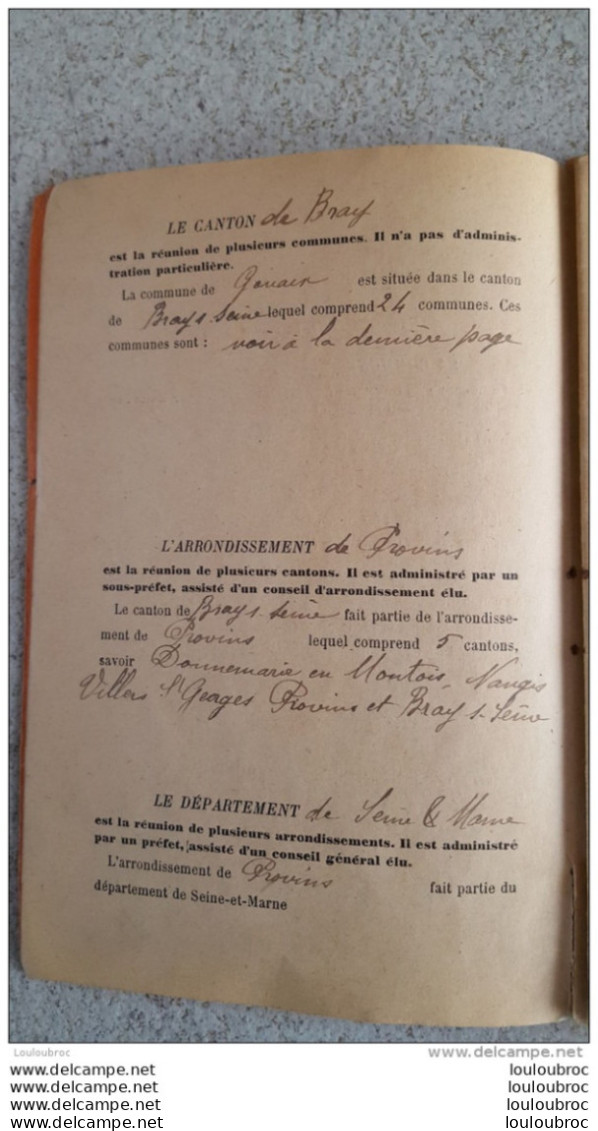 LE CANTON de Bray
est la réunion de plusieurs communes. Il n'a pas d'adminis-
tration particulière.
La commune de Gouaix est située dans le canton
de Bray s. Seine lequel comprend 24 communes. Ces
communes sont : voir à la dernière page
L'ARRONDISSEMENT de Provins
est la réunion de plusieurs cantons. Il est administré par un
sous-préfet, assisté d'un conseil d'arrondissement élu.
Le canton de Bray s. Seine fait partie de l'arrondisse-
ment de Provins lequel comprend 5 cantons,
savoir Donnemarie en Montois, Nangis
Villers St Geages Provins et Bray s. Seine
LE DÉPARTEMENT de Seine & Marne
est la réunion de plusieurs arrondissements. Il est administré
par un préfet, assisté d'un conseil général élu.
L'arrondissement de Provins fait partie du
département de Seine-et-Marne
Louloubroc
delcampe.net
www.delcampe.net louloubroc
www.delcampe.net louloubroc
www.delcampe.net louloubroc
www.delcampe.net louloubroc